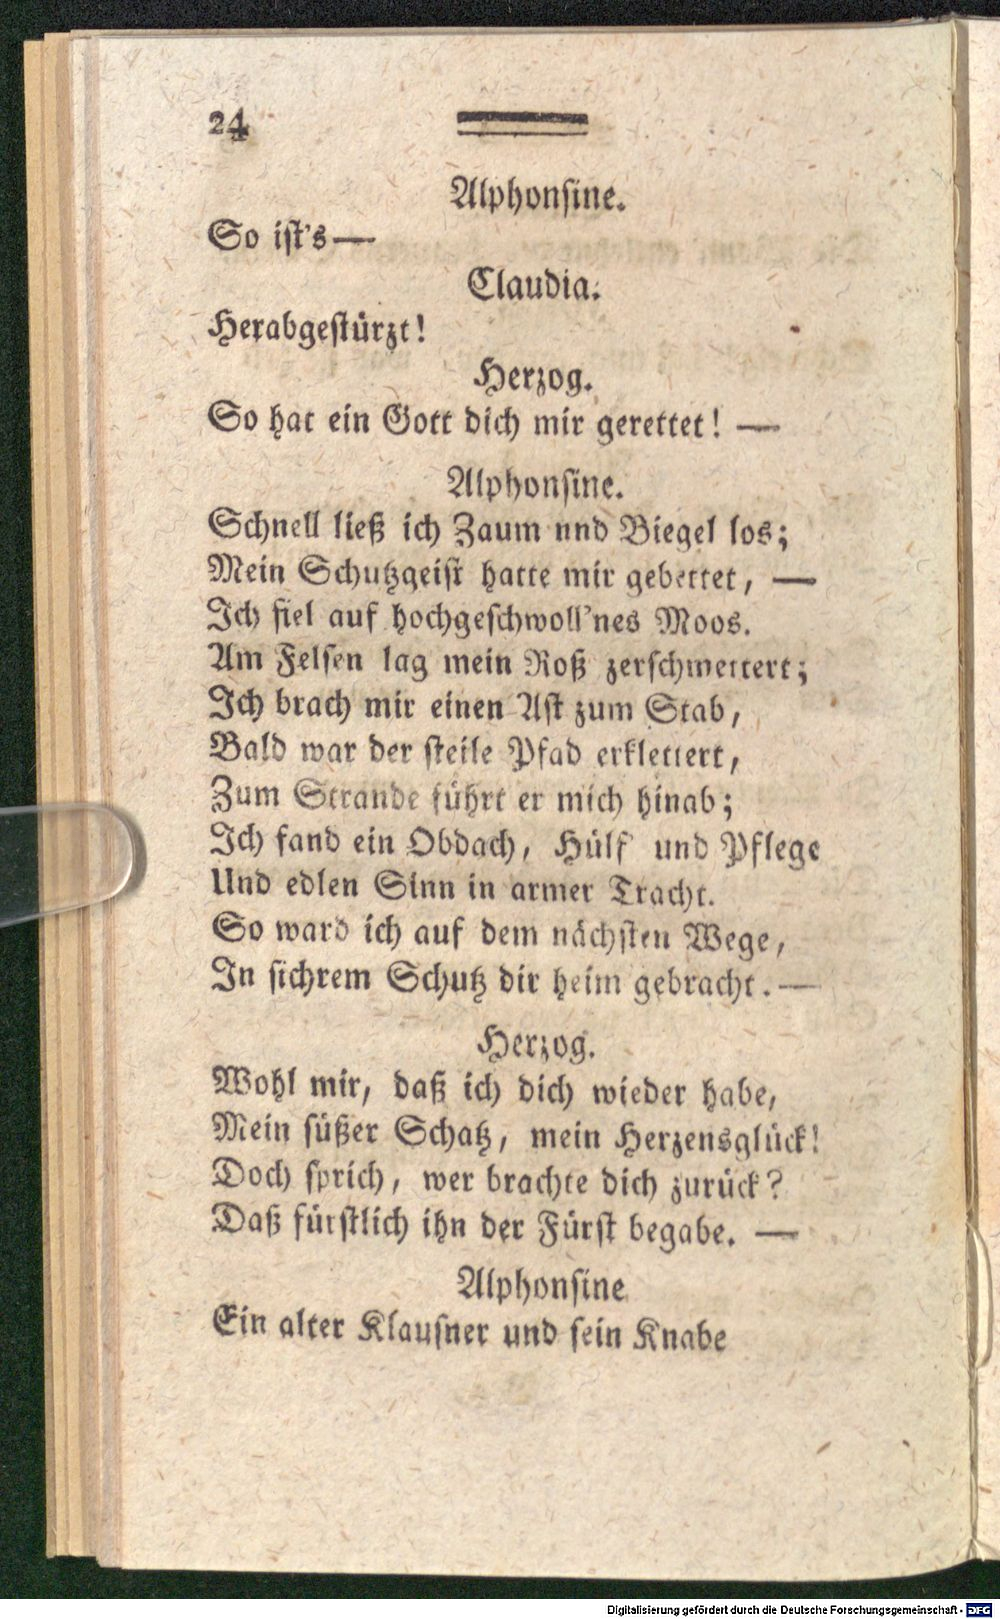 24
Alphonsine.
So ist's —
Claudia.
Herabgestürzt!
Herzog.
So hat ein Gott dich mir gerettet! —
Alphonsine.
Schnell ließ ich Zaum nnd Biegel los;
Mein Schutzgeist hatte mir gebettet, —
Ich fiel auf hochgeschwoll'nes Moos.
Am Felsen lag mein Roß zerschmettert;
Ich brach mir einen Ast zum Stab,
Bald war der steile Pfad erklettert,
Zum Strande führt er mich hinab;
Ich fand ein Obdach, Hülf' und Pflege
Und edlen Sinn in armer Tracht.
So ward ich auf dem nächsten Wege,
In sichrem Schutz dir heim gebracht. —
Herzog.
Wohl mir, daß ich dich wieder habe,
Mein süßer Schatz, mein Herzensglück!
Doch sprich, wer brachte dich zurück?
Daß fürstlich ihn der Fürst begabe. —
Alphonsine
Ein alter Klausner und sein Knabe
Digitalisierung gefördert durch die Deutsche Forschungsgemeinschaft - DFG